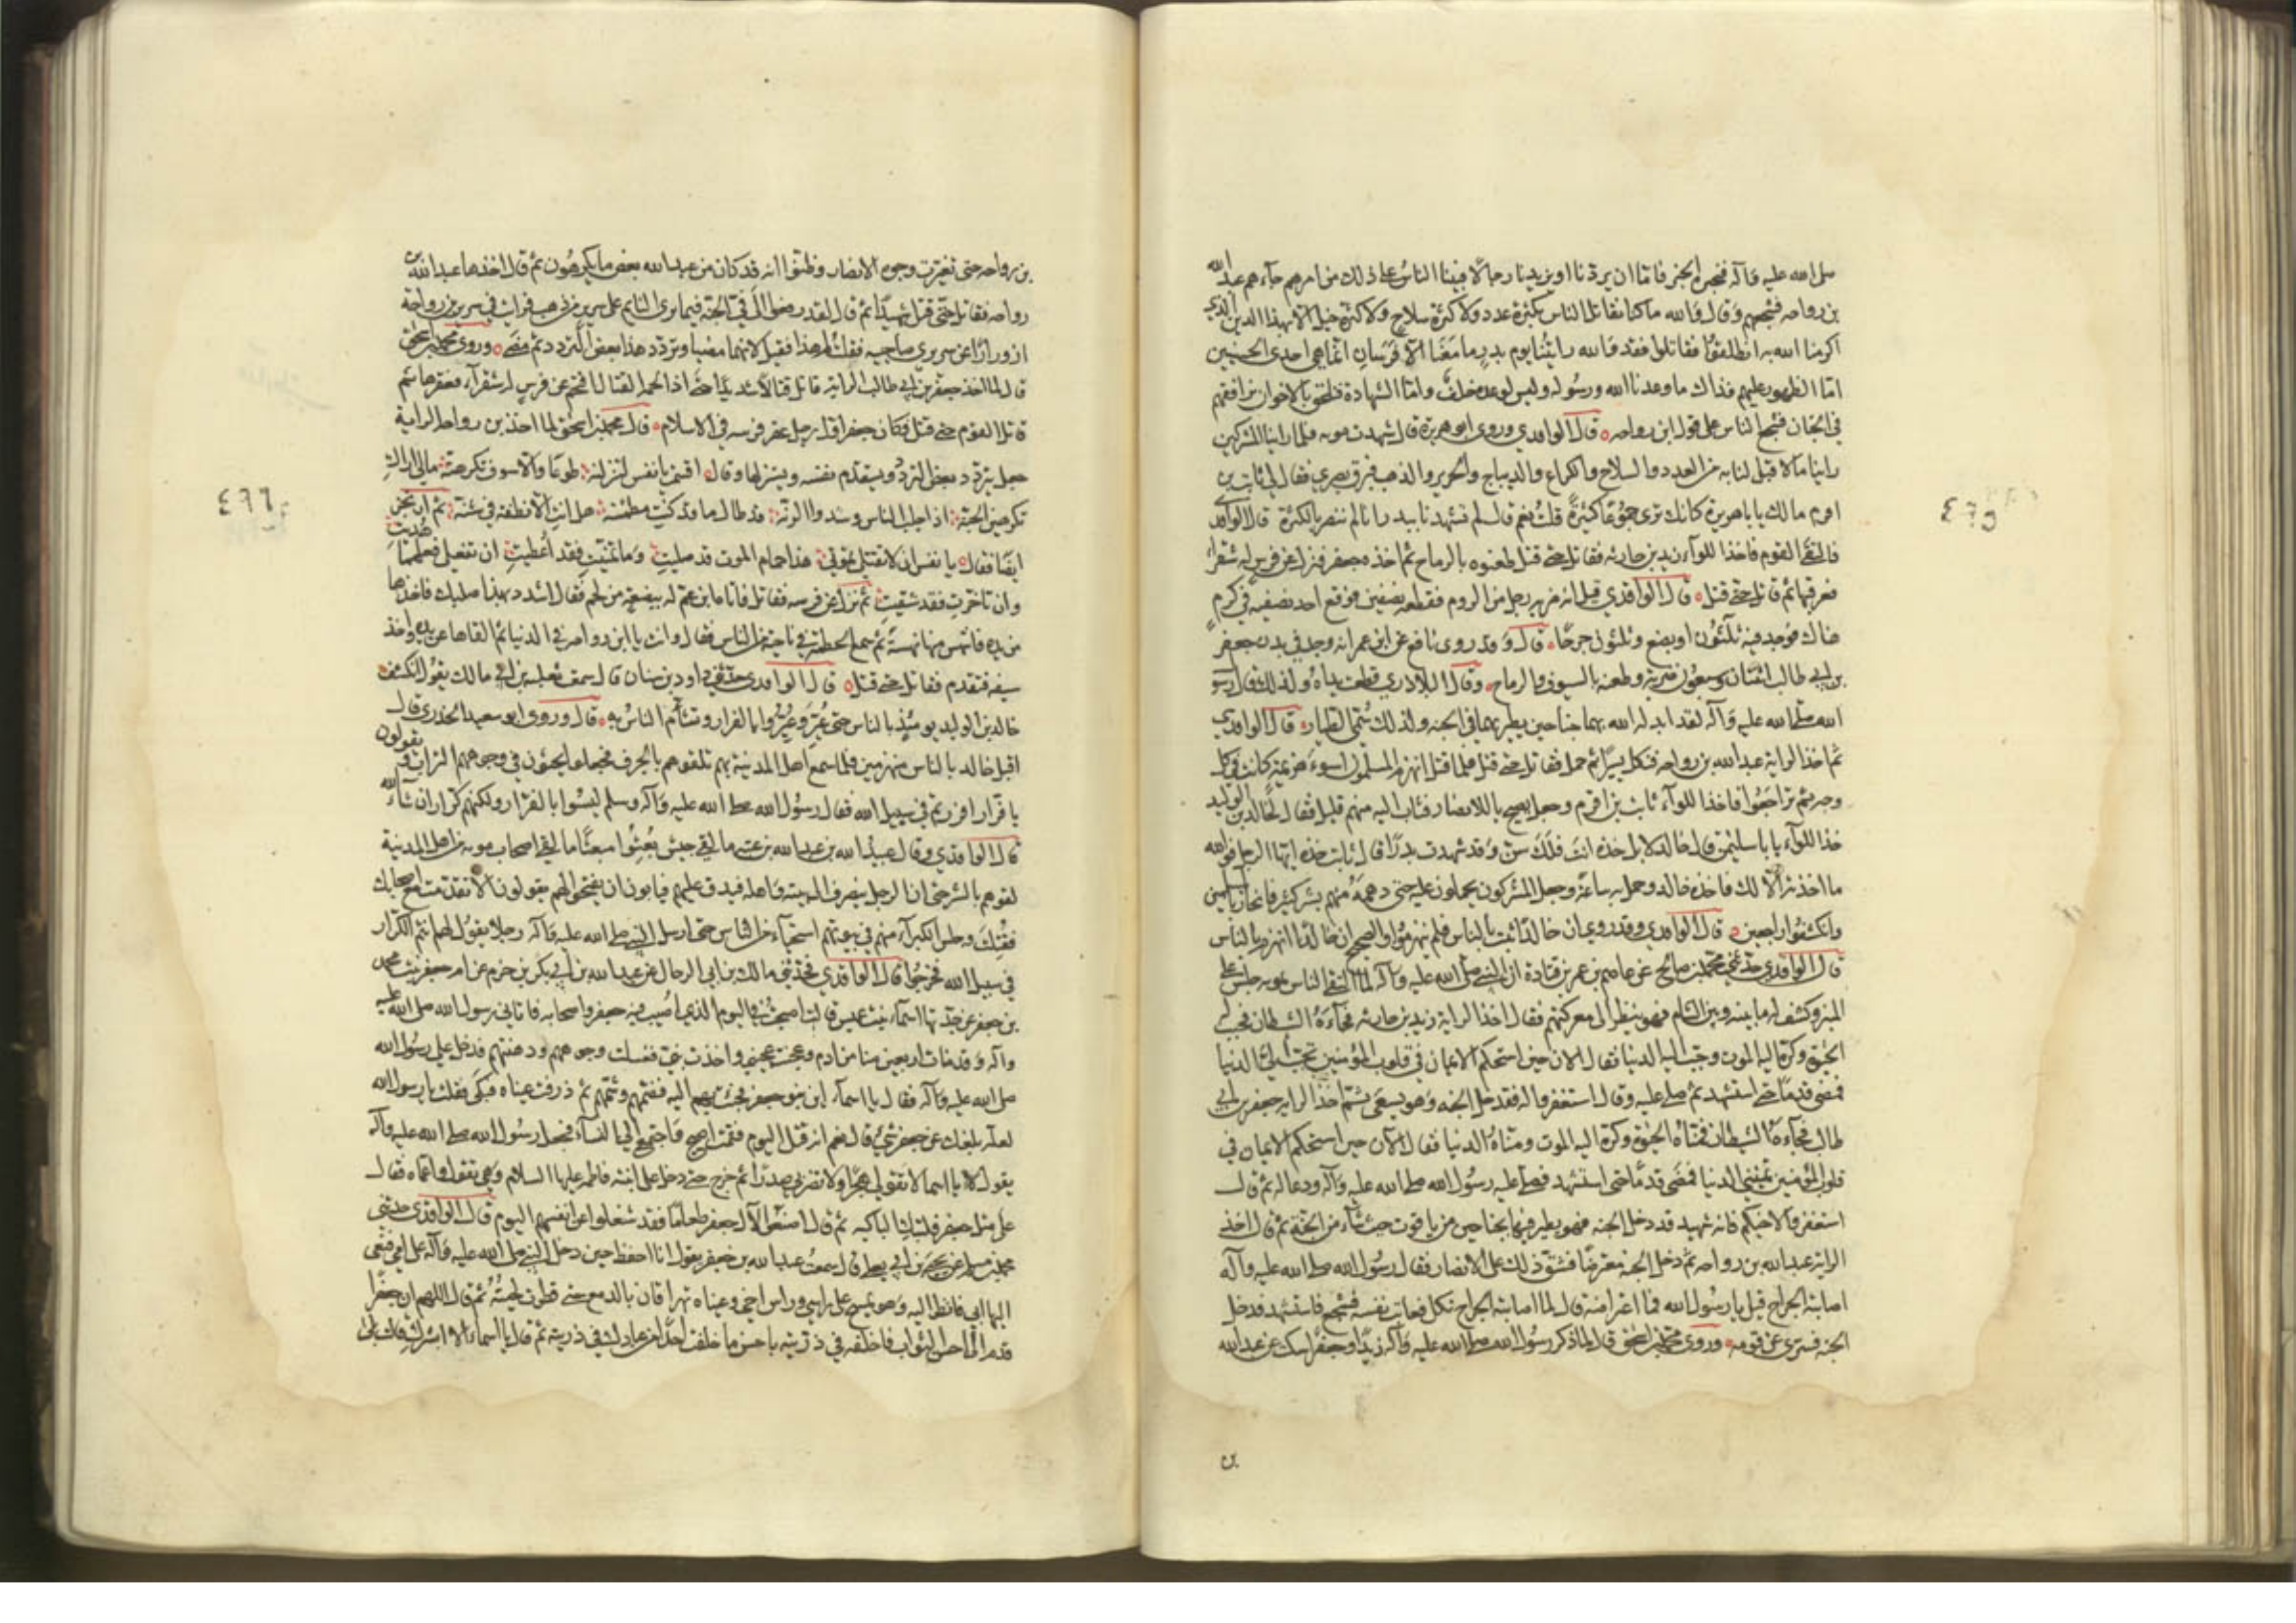 صلى الله عليه وآله فنخبره الخبر فاما ان يردنا او يزيدنا رجالا فبينا الناس على ذلك من امرهم جاءهم عبد الله
بن رواحه فشجعهم وقال والله ما كنا نقاتل الناس بكثرة عدد ولا كثرة سلاح ولا كثرة خيل الا بهذا الدين الذي
اكرمنا الله به انطلقوا فقاتلوا فقد والله رايتنا يوم بدر ما معنا الا فرسان انما هي احدى الحسنيين
اما الظهور عليهم فذاك ما وعدنا الله ورسوله وليس لوعده خلف واما الشهادة فنلحق بالاخوان نرافقهم
في الجنان فشجع الناس على قول ابن رواحه قال الواقدي وروى ابو هريرة قال شهدت موته فلما راينا المشركين
راينا ما لا قبل لنا به من العدد والسلاح والكراع والديباج والحرير والذهب فبرق بصري فقال لي ثابت بن
اقرم ما لك يا باهريرة كانك ترى جموعا كثيرة قلت نعم قال لم تشهدنا ببدر انا لم ننصر بالكثرة قال الواقدي
فالتقى القوم فاخذ اللواء زيد بن حارثه فقاتل حتى قتل طعنوه بالرماح ثم اخذه جعفر فنزل عن فرس له شقراء
فعرقبها ثم قاتل حتى قتل قال الواقدي قيل انه ضربه رجل من الروم فقطعه نصفين فوقع احد نصفيه في كرم
هناك فوجد فيه ثلثون او بضع وثلثون جرحا قال وقد روى نافع عن ابن عمر انه وجد في بدن جعفر
بن ابي طالب اثنتان وسبعون ضربة وطعنه بالسيوف والرماح وقال البلاذري قطعت يداه ولذلك قال رسول
الله صلى الله عليه وآله لقد ابدله الله بهما جناحين يطير بهما في الجنه ولذلك سمي الطيار قال الواقدي
ثم اخذ الراية عبد الله بن رواحه فنكل يسيرا ثم حمل فقاتل حتى قتل فلما قتل انهزم المسلمون اسوء هزيمة كانت في كل
وجه ثم تراجعوا فاخذ اللواء ثابت بن اقرم وجعل يصيح يا للانصار فثاب اليه منهم قليل فقال لخالد بن الوليد
خذ اللواء يا با سليمن قال خالد لا بل خذه انت فلك سن وقد شهدت بدرا قال ثابت خذه ايها الرجل فوالله
ما اخذته الا لك فاخذه خالد وحمل به ساعة وجعل المشركون يحملون عليه حتى دهمه منهم بشر كثير فانحاز بالمسلمين
وانكشفوا راجعين قال الواقدي وقد روي ان خالدا ثبت بالناس فلم ينهزموا والصحيح ان خالدا انهزم بالناس
قال الواقدي حدثني محمد بن صالح عن عاصم بن عمر بن قتادة ان النبي صلى الله عليه وآله لما التقى الناس بموته جلس على
المنبر وكشف له ما بينه وبين الشام فهو ينظر الى معركتهم فقال اخذ الراية زيد بن حارثه فجاءه الشيطان فحبب اليه
الحيوة وكره اليه الموت وحبب اليه الدنيا فقال الان حين استحكم الايمان في قلوب المؤمنين تحبب الي الدنيا
فمضى قدما حتى استشهد ثم صلى عليه وقال استغفروا له فقد دخل الجنه وهو يسعى ثم اخذ الراية جعفر بن ابي
طالب فجاءه الشيطان فمناه الحيوة وكره اليه الموت ومناه الدنيا فقال الآن حين استحكم الايمان في
قلوب المؤمنين تمنيني الدنيا فمضى قدما حتى استشهد فصلى عليه رسول الله صلى الله عليه وآله ودعا له ثم قال
استغفروا لاخيكم فانه شهيد قد دخل الجنه فهو يطير فيها بجناحين من ياقوت حيث شاء من الجنة ثم قال اخذ
الراية عبد الله بن رواحه ثم دخل الجنه معترضا فشق ذلك على الانصار فقال رسول الله صلى الله عليه وآله
اصابته الجراح قيل يا رسول الله فما اعتراضه قال لما اصابته الجراح نكل فعاتب نفسه فشجع فاستشهد فدخل
الجنه فسري عن قومه وروى محمد بن اسحق قال لما ذكر رسول الله صلى الله عليه وآله زيدا وجعفرا سكت عن عبد الله
بن
٤٦٥
بن رواحه حتى تغيرت وجوه الانصار وظنوا انه قد كان من عبد الله بعض ما يكرهون ثم قال اخذها عبد الله بن
رواحه فقاتل حتى قتل شهيدا ثم قال لقد رفعوا الي في الجنة فيما يرى النايم على سرير من ذهب فرايت في سرير بن رواحة
ازورارا عن سريري صاحبيه فقلت لم هذا فقيل لانهما مضيا وتردد هذا بعض التردد ثم مضى وروى محمد بن اسحق
قال لما اخذ جعفر بن ابي طالب الراية قاتل قتالا شديدا حتى اذا الحمه القتال اقتحم عن فرس له شقراء فعقرها ثم
قاتل القوم حتى قتل فكان جعفر اول رجل عقر فرسه في الاسلام قال محمد بن اسحق لما اخذ بن رواحه الراية
جعل يتردد بعض التردد ويستقدم نفسه ويستنزلها وقال اقسمت يا نفس لتنزلنه طوعا والا سوف تكرهنه مالي اراك
تكرهين الجنة اذ اجلب الناس وشدوا الرنه قد طال ما قد كنت مطمئنه هل انت الا نطفه في شنة ثم ارتجز
ايضا فقال يا نفس ان لا تقتلي تموتي هذا حمام الموت قد صليت وما تمنيت فقد اعطيت ان تفعلي فعلهما هديت
وان تاخرت فقد شقيت ثم نزل عن فرسه فقاتل فاتاه ابن عم له ببضعة من لحم فقال اشدد بهذا صلبك فاخذها
من يده فانتهس منها نهسة ثم سمع الحطمة في ناحية من الناس فقال وانت يا ابن رواحه في الدنيا ثم القاها من يده واخذ
سيفه فتقدم فقاتل حتى قتل قال الواقدي حدثني داود بن سنان قال سمعت ثعلبه بن ابي مالك يقول انكشف
خالد بن الوليد يومئذ بالناس حتى عيروا بالفرار وتشاءم الناس به قال وروى ابو سعيد الخدري قال
اقبل خالد بالناس منهزمين فلما سمع اهل المدينة بهم تلقوهم بالجرف فجعلوا يحثون في وجوههم التراب ويقولون
يا فرار افررتم في سبيل الله فقال رسول الله صلى الله عليه وآله وسلم ليسوا بالفرار ولكنهم كرار ان شاء الله
قال الواقدي وقال عبيد الله بن عبد الله بن عتبه ما لقي جيش بعثوا مبعثا ما لقي اصحاب موته من اهل المدينة
لقوهم بالشر حتى ان الرجل ينصرف الى بيته واهله فيدق عليهم فيابون ان يفتحوا لهم يقولون الا تقدمت مع اصحابك
فقتلت وجلس الكبراء منهم في بيوتهم استحياء من الناس حتى ارسل النبي صلى الله عليه وآله رجلا يقول لهم انتم الكرار
في سبيل الله فخرجوا قال الواقدي فحدثني مالك بن ابي الرجال عن عبد الله بن ابي بكر بن حزم عن ام جعفر بنت محمد
بن جعفر عن جدتها اسماء بنت عميس قالت اصبحت في اليوم الذي اصيب فيه جعفر واصحابه فاتاني رسول الله صلى الله عليه
وآله وقد منات اربعين منا من ادم وعجنت عجيني واخذت بني فغسلت وجوههم ودهنتهم فدخل علي رسول الله
صلى الله عليه وآله فقال يا اسماء اين بنو جعفر فجئت بهم اليه فضمهم وشمهم ثم ذرفت عيناه فبكى فقلت يا رسول الله
لعله بلغك عن جعفر شيء قال نعم انه قتل اليوم فقمت اصيح واجتمع الي النساء فجعل رسول الله صلى الله عليه وآله
يقول لا يا اسما لا تقولي هجرا ولا تضربي صدرا ثم خرج حتى دخل على ابنته فاطمه عليها السلام وهي تقول واعماه فقال
على مثل جعفر فلتبك الباكيه ثم قال اصنعوا لآل جعفر طعاما فقد شغلوا عن انفسهم اليوم قال الواقدي حدثني
محمد بن مسلم عن يحيى بن ابي يعلى قال سمعت عبد الله بن جعفر يقول انا احفظ حين دخل النبي صلى الله عليه وآله على امي فنعى
اليها ابي فانظر اليه وهو يمسح على راسي وراس اخي وعيناه تهراقان بالدمع حتى قطرت لحيته ثم قال اللهم ان جعفرا
قدم الى احسن الثواب فاخلفه في ذريته باحسن ما خلفت احدا من عبادك في ذريته ثم قال يا اسماء الا ابشرك قالت بلى
٤٦٦